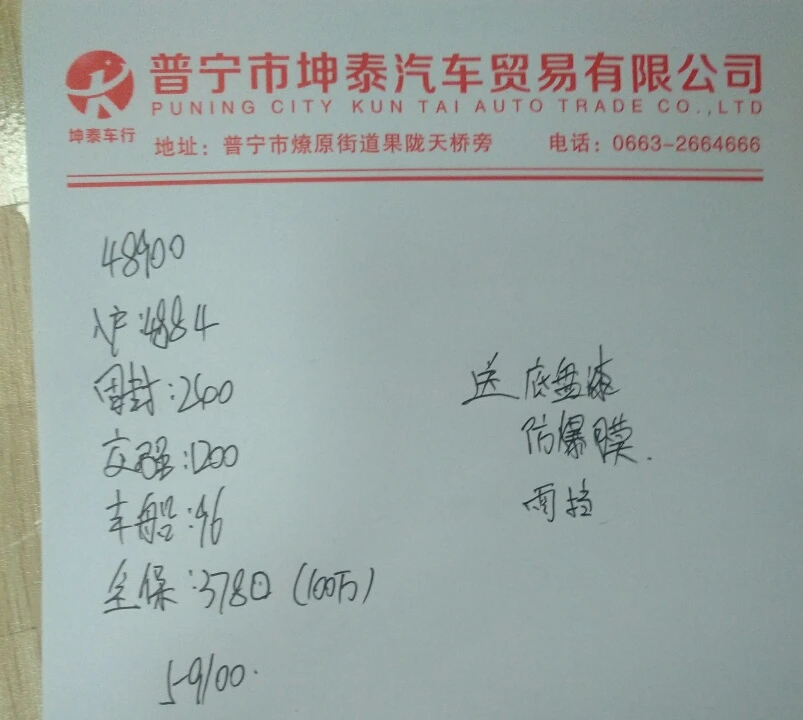 坤泰车行
普宁市坤泰汽车贸易有限公司
PUNING CITY KUN TAI AUTO TRADE CO.,LTD
地址：普宁市燎原街道果陇天桥旁 电话：0663-2664666
48900
入户:4884
封:2400
交强:1200
车船:96
全保:3780（100万）
59100.
送 底盘漆
防爆膜.
雨挡